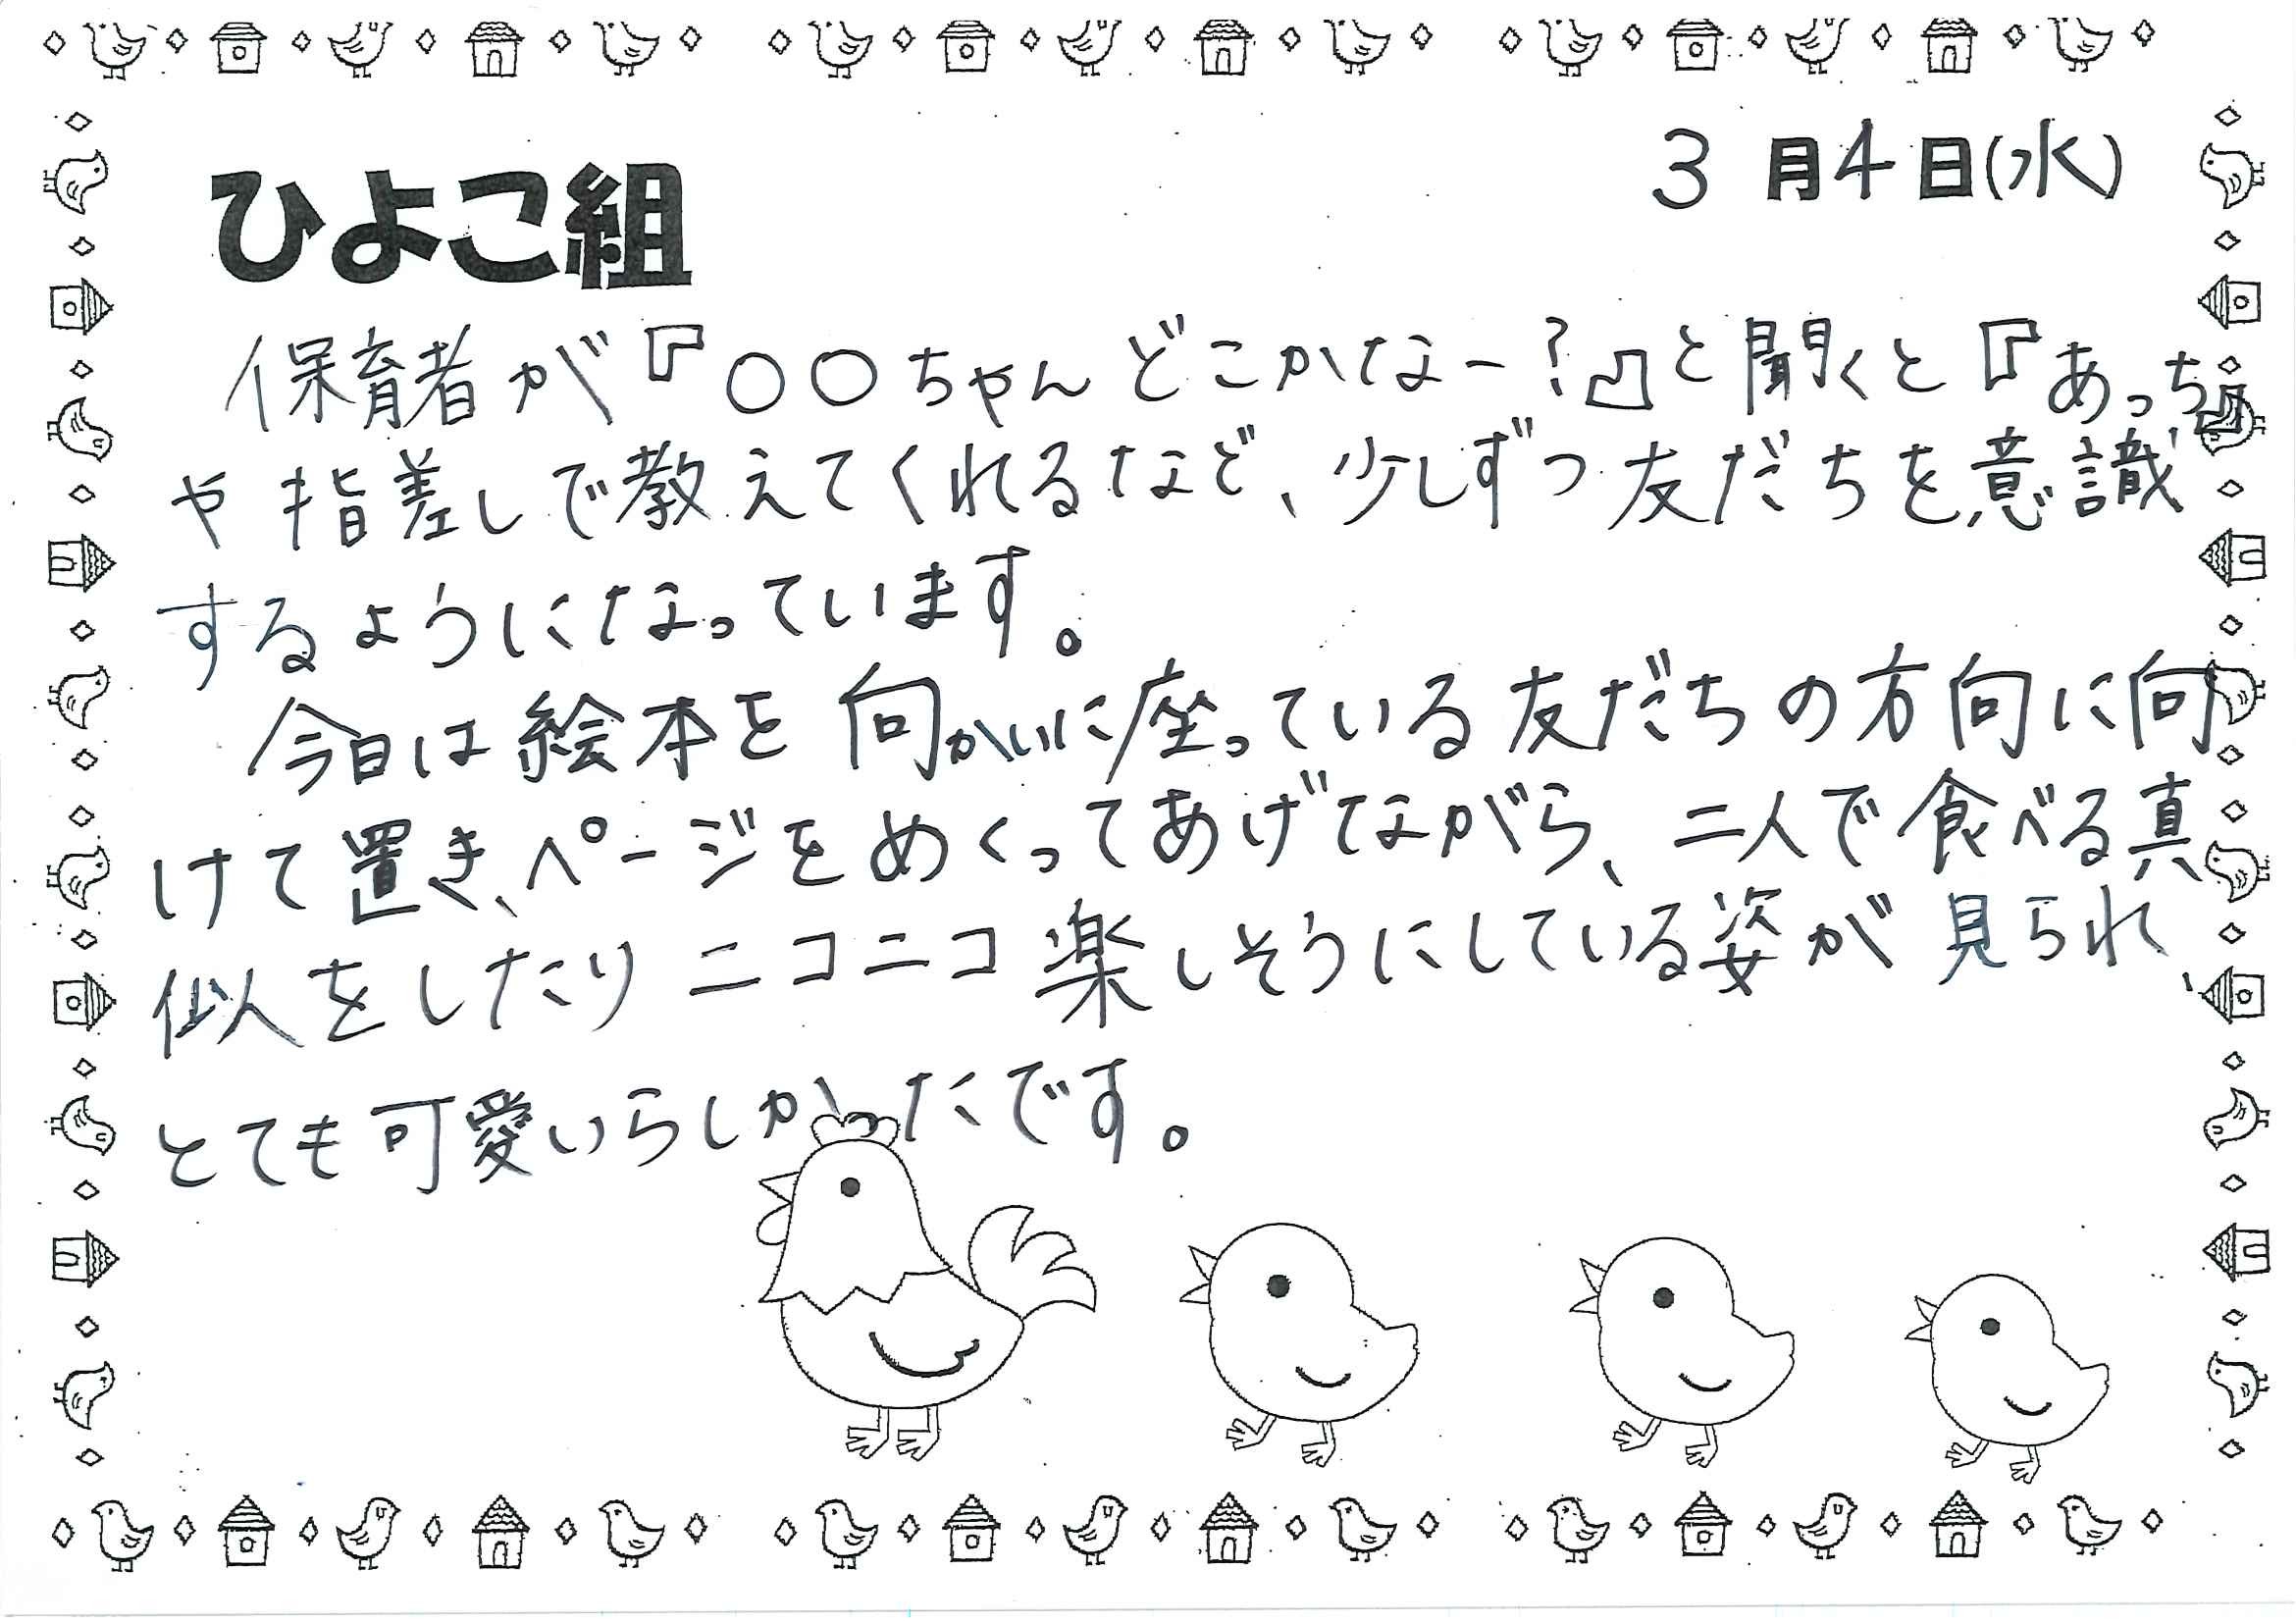 3月4日(水)
ひよこ組
保育者が『○○ちゃんどこかなー?』と聞くと『あっち』
や指差しで教えてくれるなど、少しずつ友だちを意識
するようになっています。
今日は絵本を向かいに座っている友だちの方向に向
けて置き、ページをめくってあげてながら、二人で食べる真
似をしたりニコニコ楽しそうにしている姿が見られ、
とても可愛いらしかったです。